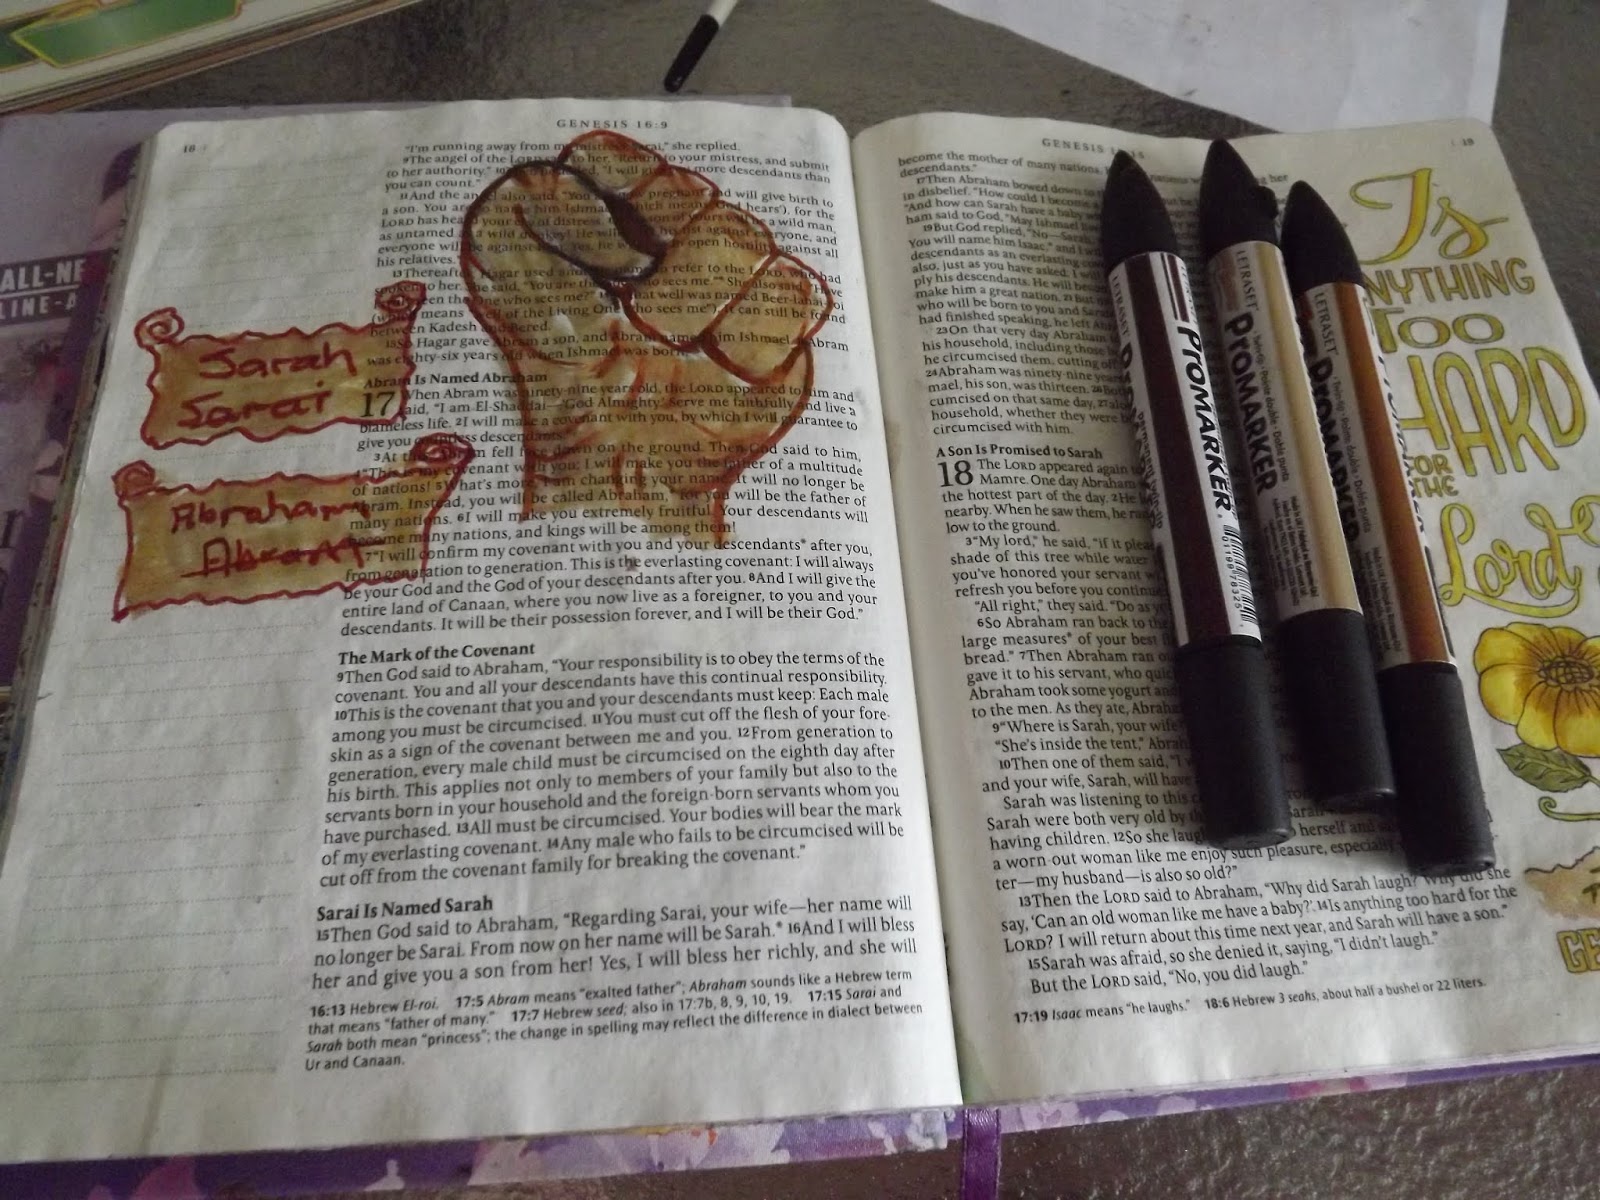 ALL-NE
LINE-A
16
GENESIS 16:9
"I'm running away from my mistress, Sarai," she replied.
9The angel of the LORD said to her, "Return to your mistress, and submit
to her authority." 10 more descendants than
you can count."
11And the angel also said, "You pregnant and will give birth to
a son. You are to name him Ishmael (which means 'God hears'), for the
LORD has heard your cry of distress. This son of yours will be a wild man,
as untamed as a wild donkey! He will raise his fist against everyone, and
everyone will be against him. Yes, he will live in open hostility against all
his relatives."
13Thereafter, Hagar used another name to refer to the LORD, who had
spoken to her. She said, "You are the God who sees me."* She also said, "Have
seen the One who sees me?" 14 that well was named Beer-lahai-roi
(which means "well of the Living One who sees me"). It can still be found
between Kadesh and Bered.
15So Hagar gave Abram a son, and Abram named him Ishmael. 16Abram
was eighty-six years old when Ishmael was born.
Sarah
Sarai
Abram Is Named Abraham
17 When Abram was ninety-nine years old, the LORD appeared to him and
said, "I am El-Shaddai—'God Almighty.' Serve me faithfully and live a
blameless life. 2I will make a covenant with you, by which I will guarantee to
give you countless descendants."
3At this, Abram fell face down on the ground. Then God said to him,
4"This is my covenant with you: I will make you the father of a multitude
of nations! 5What's more, I am changing your name. It will no longer be
Abram. Instead, you will be called Abraham,* for you will be the father of
many nations. 6I will make you extremely fruitful. Your descendants will
become many nations, and kings will be among them!
Abraham
Abram
7"I will confirm my covenant with you and your descendants* after you,
from generation to generation. This is the everlasting covenant: I will always
be your God and the God of your descendants after you. 8And I will give the
entire land of Canaan, where you now live as a foreigner, to you and your
descendants. It will be their possession forever, and I will be their God."
The Mark of the Covenant
9Then God said to Abraham, "Your responsibility is to obey the terms of the
covenant. You and all your descendants have this continual responsibility.
10This is the covenant that you and your descendants must keep: Each male
among you must be circumcised. 11You must cut off the flesh of your fore-
skin as a sign of the covenant between me and you. 12From generation to
generation, every male child must be circumcised on the eighth day after
his birth. This applies not only to members of your family but also to the
servants born in your household and the foreign-born servants whom you
have purchased. 13All must be circumcised. Your bodies will bear the mark
of my everlasting covenant. 14Any male who fails to be circumcised will be
cut off from the covenant family for breaking the covenant."
Sarai Is Named Sarah
15Then God said to Abraham, "Regarding Sarai, your wife—her name will
no longer be Sarai. From now on her name will be Sarah.* 16And I will bless
her and give you a son from her! Yes, I will bless her richly, and she will
16:13 Hebrew El-roi. 17:5 Abram means "exalted father"; Abraham sounds like a Hebrew term
that means "father of many." 17:7 Hebrew seed; also in 17:7b, 8, 9, 10, 19. 17:15 Sarai and
Sarah both mean "princess"; the change in spelling may reflect the difference in dialect between
Ur and Canaan.
GENESIS
19
become the mother of many nations.
descendants."
17Then Abraham bowed down to
in disbelief. "How could I become
"And how can Sarah have a baby
ham said to God, "May Ishmael
19But God replied, "No—Sarah,
You will name him Isaac,* and I
descendants as an everlasting
also, just as you have asked. I will
ply his descendants. He will
make him a great nation. 21But
who will be born to you and Sarah
had finished speaking, he left
23On that very day Abraham
his household, including those
he circumcised them, cutting off
24Abraham was ninety-nine years
mael, his son, was thirteen.
cumcised on that same day,
household, whether they were
circumcised with him.
A Son Is Promised to Sarah
18 The LORD appeared again
Mamre. One day Abraham
the hottest part of the day. 2He
nearby. When he saw them, he ran
low to the ground.
3"My lord," he said, "if it
shade of this tree while water
you've honored your servant
refresh you before you continue
"All right," they said. "Do as
6So Abraham ran back to the
large measures* of your best
bread." 7Then Abraham ran
gave it to his servant, who
Abraham took some yogurt and
to the men. As they ate, Abraham
9"Where is Sarah, your wife
"She's inside the tent,"
10Then one of them said,
and your wife, Sarah, will have
Sarah was listening to this
Sarah were both very old by
having children. 12So she herself and
a worn-out woman like me enjoy such pleasure, especially
ter—my husband—is also so old?"
13Then the LORD said to Abraham, "Why did Sarah laugh? Why did she
say, 'Can an old woman like me have a baby?' 14Is anything too hard for the
LORD? I will return about this time next year, and Sarah will have a son."
15Sarah was afraid, so she denied it, saying, "I didn't laugh."
But the LORD said, "No, you did laugh."
17:19 Isaac means "he laughs." 18:6 Hebrew 3 seahs, about half a bushel or 22 liters.
LETRASET
PROMARKER
LETRASET
PROMARKER
LETRASET
PROMARKER
Is
ANYTHING
TOO
HARD
FOR
THE
Lord
GE